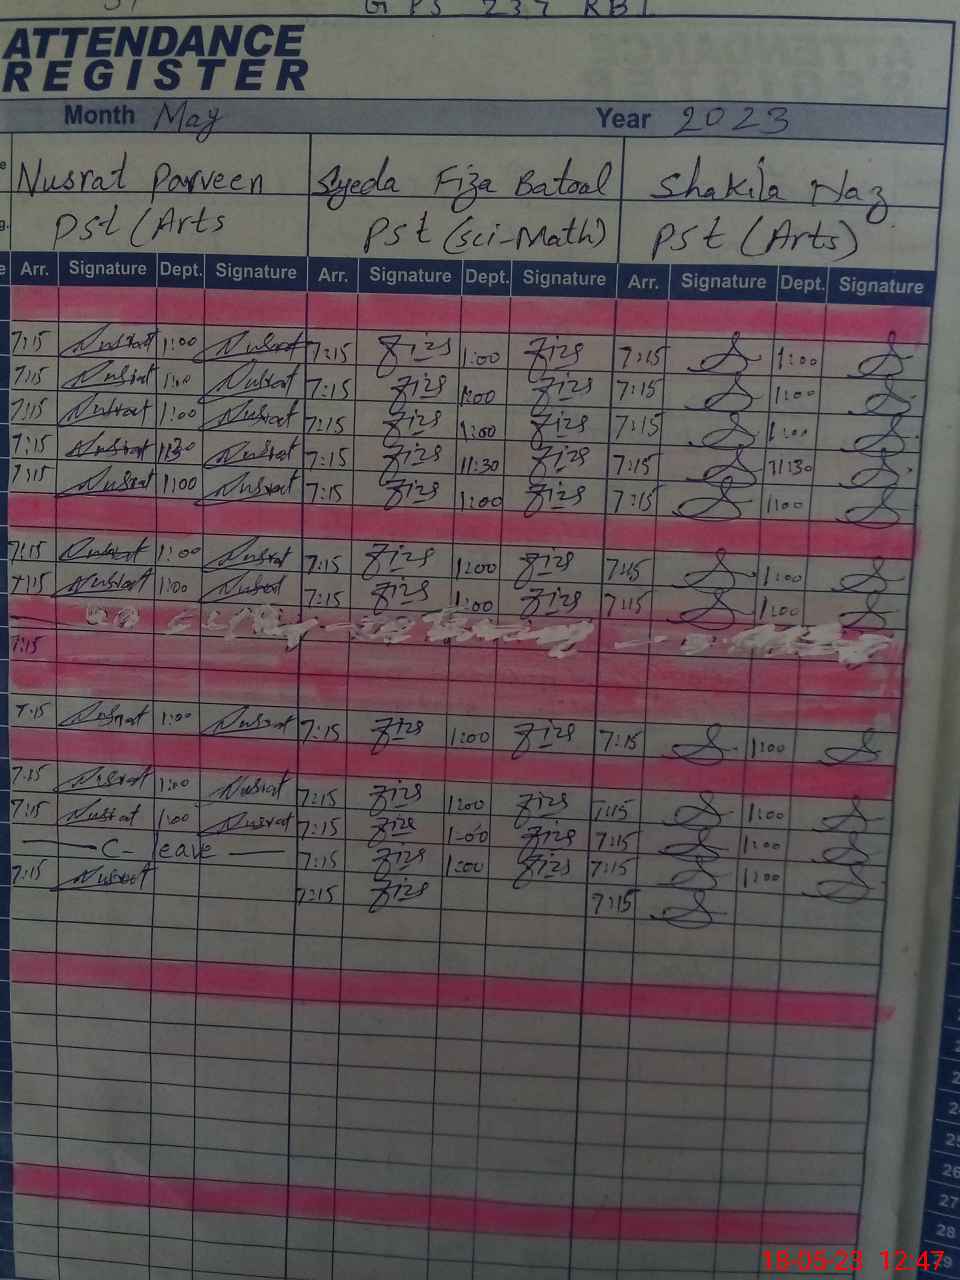 GPS 237 RB1
ATTENDANCE
REGISTER
Month May Year 2023
Nusrat Parveen Syeda Fiza Batool Shakila Naz
Pst (Arts Pst (sci-Math) Pst (Arts)
Arr. Signature Dept. Signature Arr. Signature Dept. Signature Arr. Signature Dept. Signature
7:15 Nusrat 1:00 Nusrat 7:15 Fiza 1:00 Fiza 7:15 1:00
7:15 Nusrat 1:00 Nusrat 7:15 Fiza 1:00 Fiza 7:15 1:00
7:15 Nusrat 1:00 Nusrat 7:15 Fiza 1:00 Fiza 7:15 1:00
7:15 Nusrat 11:30 Nusrat 7:15 Fiza 11:30 Fiza 7:15 11:30
7:15 Nusrat 1:00 Nusrat 7:15 Fiza 1:00 Fiza 7:15 1:00
7:15 Nusrat 1:00 Nusrat 7:15 Fiza 1:00 Fiza 7:15 1:00
7:15 Nusrat 1:00 Nusrat 7:15 Fiza 1:00 Fiza 7:15 1:00
7:15
7:15 Nusrat 1:00 Nusrat 7:15 Fiza 1:00 Fiza 7:15 1:00
7:15 Nusrat 1:00 Nusrat 7:15 Fiza 1:00 Fiza 7:15 1:00
7:15 Nusrat 1:00 Nusrat 7:15 Fiza 1:00 Fiza 7:15 1:00
C- leave 7:15 Fiza 1:00 Fiza 7:15 1:00
7:15 Nusrat 7:15 Fiza 7:15
25
26
27
28
18-05-23 12:47